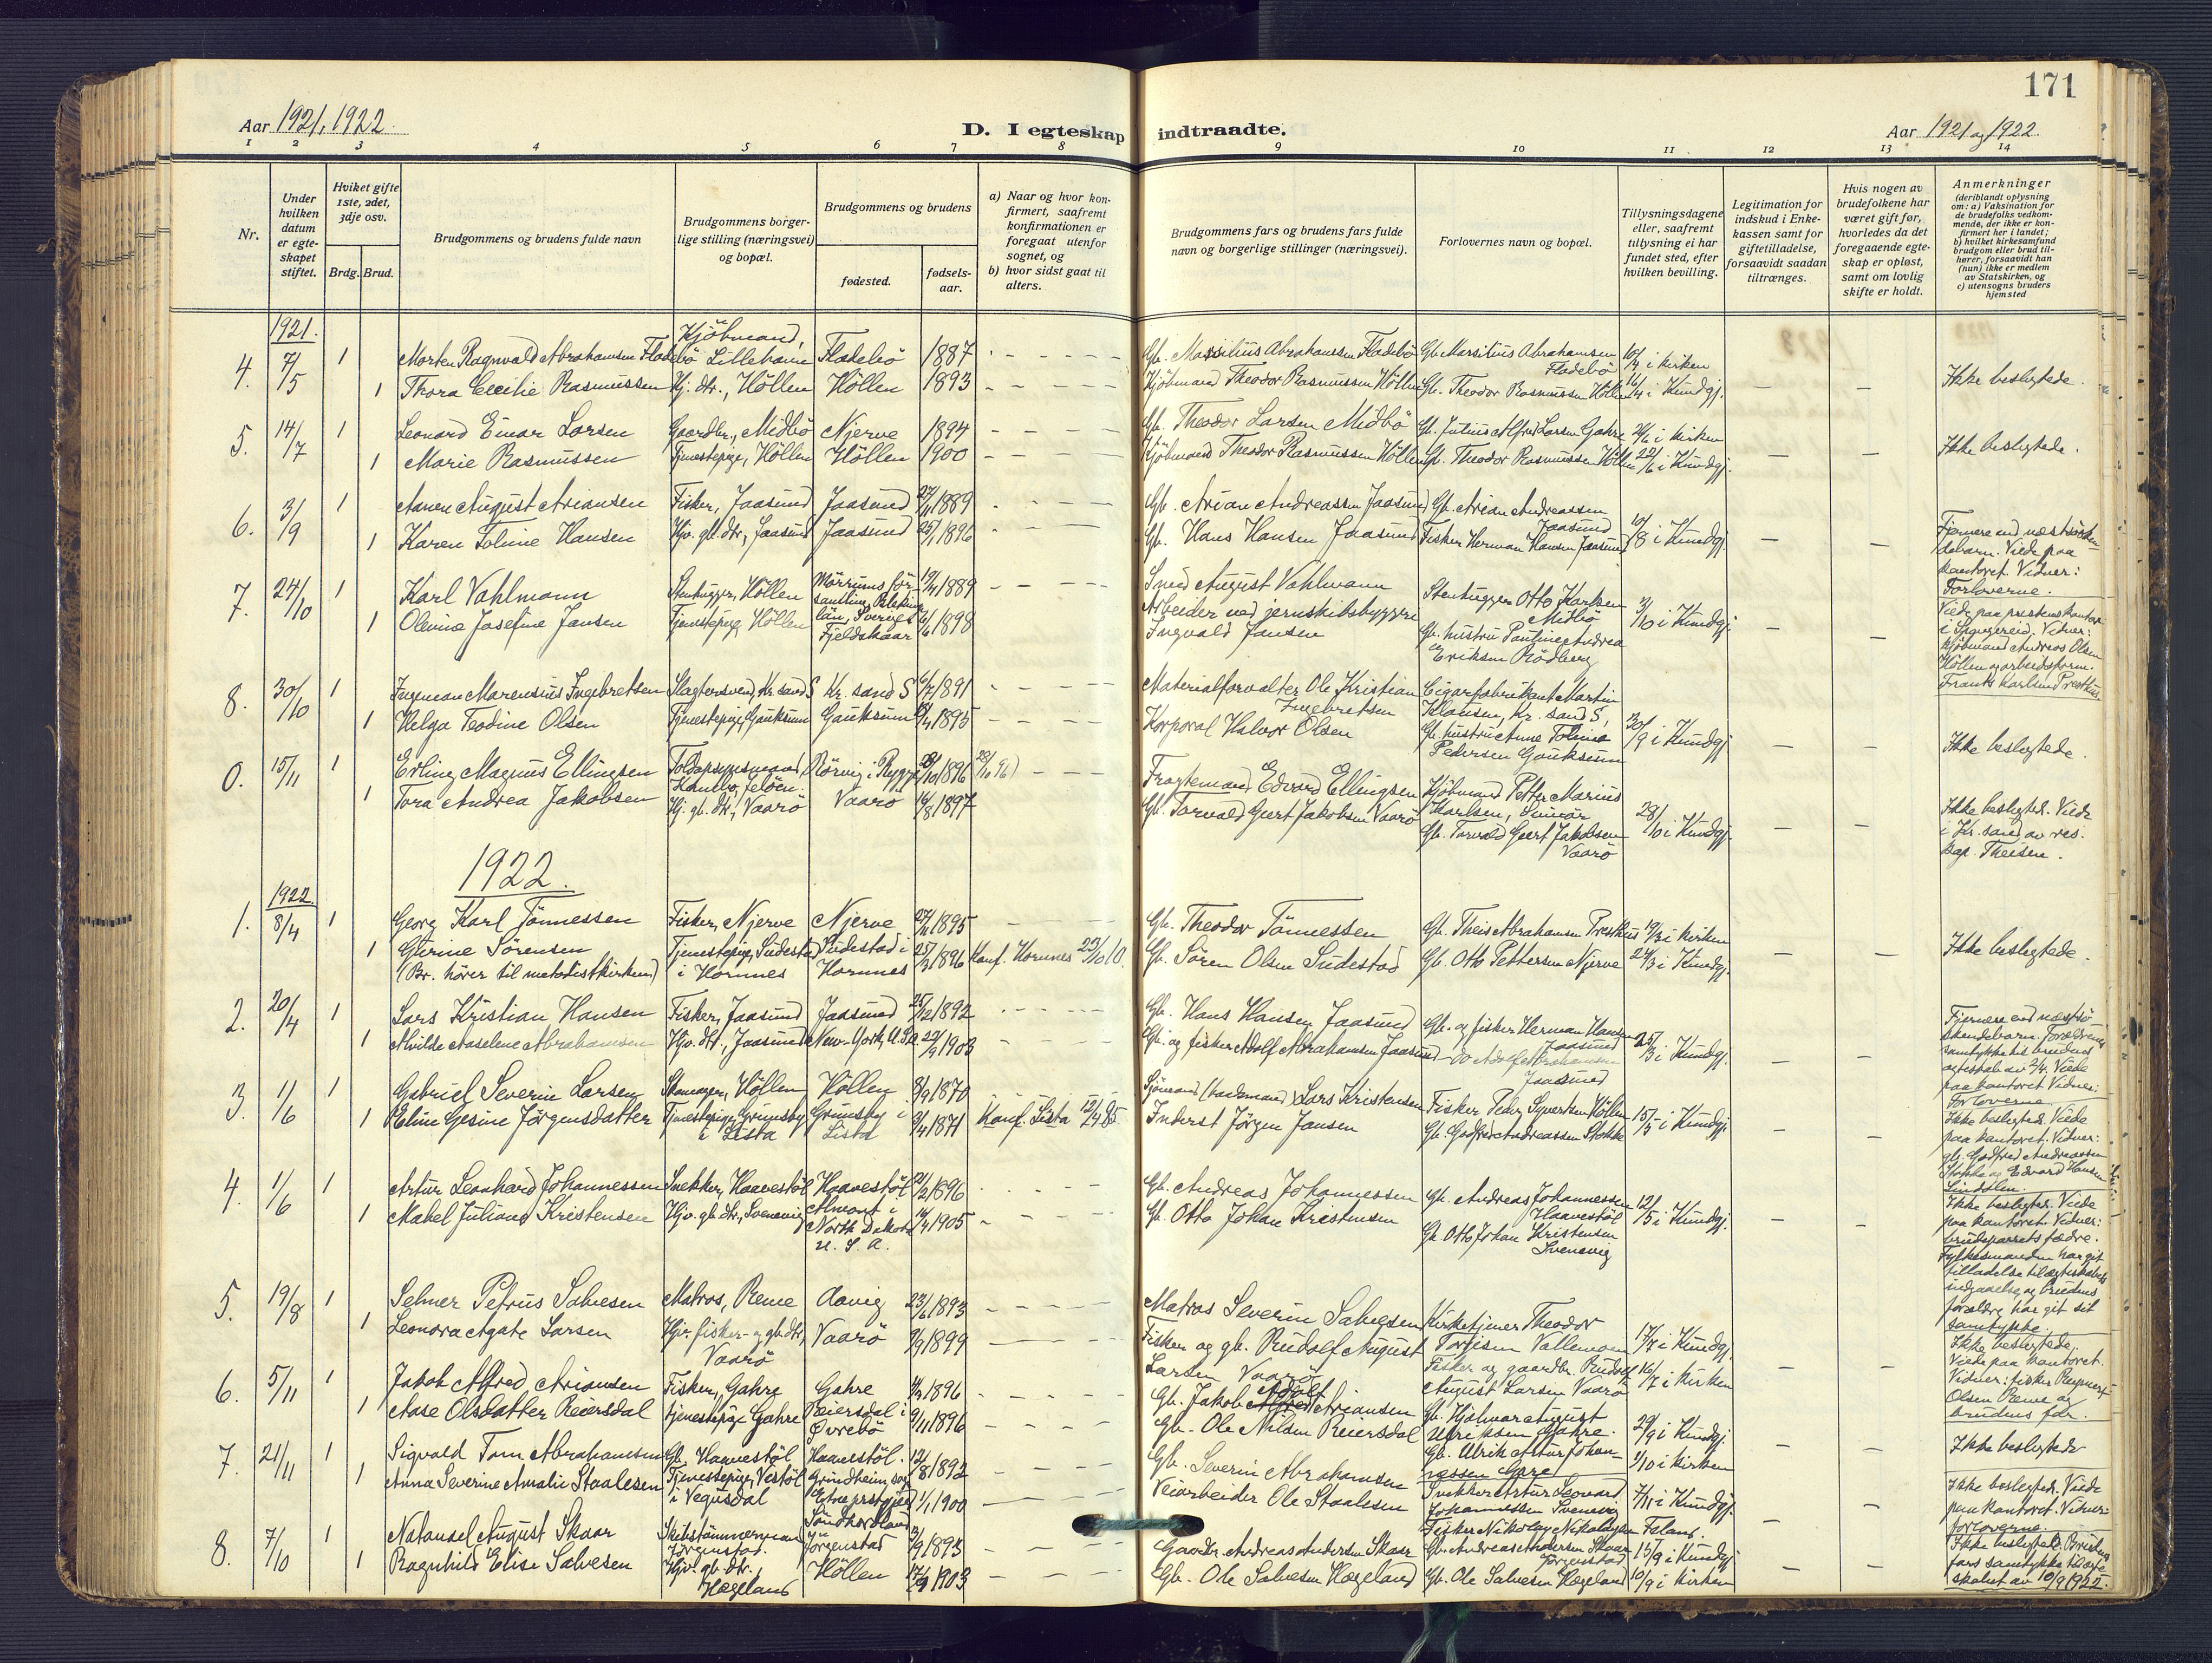 171
Aar 1921, 1922
D. I egteskap indtraadte.
Aar 1921 og 1922.
1 2 3 4 5 6 7 8 9 10 11 12 13 14
Nr.
Under hvilken datum er egteskapet stiftet.
Hviket gifte 1ste, 2det, 3dje osv.
Brdg. Brud.
Brudgommens og brudens fulde navn
Brudgommens borgerlige stilling (næringsvei) og bopæl.
Brudgommens og brudens
fødested.
fødselsaar.
a) Naar og hvor konfirmert, saafremt konfirmationen er foregaat utenfor sognet, og
b) hvor sidst gaat til alters.
Brudgommens fars og brudens fars fulde navn og borgerlige stillinger (næringsvei).
Forlovernes navn og bopæl.
Tillysningsdagene eller, saafremt tillysning ei har fundet sted, efter hvilken bevilling.
Legitimation for indskud i Enkekassen samt for giftetilladelse, forsaavidt saadan tiltrænges.
Hvis nogen av brudefolkene har været gift før, hvorledes da det foregaaende egteskap er opløst, samt om lovlig skifte er holdt.
Anmerkninger
(deriblandt oplysning om: a) Vaksination for de brudefolks vedkommende, der ikke er konfirmert her i landet; b) hvilket kirkesamfund brudgom eller brud tilhører, forsaavidt han (hun) ikke er medlem av Statskirken, og c) utensogns bruders hjemsted
1921.
4. 7/5 1 Morten Ragnvald Abrahamsen Fladebö Kjöbmand, Lillehavn Fladebö 1887 Gb. Massilius Abrahamsen Fladebö Gb. Marsilius Abrahamsen Fladebö 10/4 i kirken
1 Thora Cecilie Rasmussen Hj. dtr., Höllen Höllen 1893 Kjöbmand Theodor Rasmussen Höllen Gb. Theodor Rasmussen Höllen 16/4 i Kundgj. Ikke beslegtede.
5. 14/7 1 Leonard Einar Larsen Gaardbr., Midbö Njerve 1894 Gb. Theodor Larsen Midbö Gb. Julius Alfred Larsen Gahre i kirken
1 Marie Rasmussen Tjenestepige, Höllen Höllen 1900 Kjöbmand Theodor Rasmussen Höllen Gb. Theodor Rasmussen Höllen 22/6 i Kundgj. Ikke beslegtede.
6. 3/9 1 August Ariansen Fisker, Jaasund Jaasund 1889 Gb. Arian Andreassen Jaasund Gb. Arian Andreassen Jaasund
1 Karen Toline Hansen Hjv. gb. dtr, Jaasund Jaasund 25/1 1896 Gb. Hans Hansen Jaasund Fisker Herman Hansen Jaasund 10/8 i Kundgj. Fjernere end næstsöskendebarn. Viede paa kontoret. Vidner: Forloverne.
7. 24/10 1 Karl Vahlmann Stenhugger, Höllen Mörrums församling, Blekinge län, Sverige 1889 Smed August Vahlmann Stenhugger Otto Karlsen Midbö
1 Olevine Josefine Jansen Tjenestepige, Höllen Fjeldskaar 6/6 1898 Arbeider ved jernskibsbyggeri Ingvald Jansen Gb. hustru Pauline Andrea Eriksen Rödberg 3/10 i Kundgj. Viede paa prestens kontor i Spangereid. Vidner: kjöbmand Andreas Olsen Höllen og arbeidsform. Frants Karlsen Presthus.
8. 30/10 1 Ingman Marensius Ingebretsen Slagtersvend, Kr. sand S Kr. sand S 6/7 1891 Materialforvalter Ole Kristian Ingebretsen Cigarfabrikant Martin Klausen, Kr. sand S,
1 Helga Teodine Olsen Tjenestepige, Gauksum Gauksum 1895 Korporal Halvor Olsen Gb. hustru Anne Toline Pedersen Gauksum 30/9 i Kundgj. Ikke beslegtede.
0. 15/11 1 Erling Magnus Ellingsen Toldopsynsmand, Rörvig i Rygge 28/10 1896 28/10 96) Fragtemand Edvard Ellingsen Kjöbmand Petter Marius Karlsen,
1 Tora Andrea Jakobsen Hj. gb. dtr., Vaarö Vaarö 16/8 1897 Gb. Torvald Geert Jakobsen Vaarö Gb. Torvald Geert Jakobsen Vaarö 28/10 i Kundgj. Ikke beslegted. Viede i Kr. sand av res. kap. Theisen.
1922.
1922
1. 8/4 1 Georg Karl Tönnessen Fisker, Njerve Njerve 1895 Gb. Theodor Tönnessen Gb. Theis Abrahamsen Presthus 19/3 i kirken
1 Gurine Sörensen Tjenestepige, Sudestad i Hornnes Sudestad i Hornnes 25/3 1896 Konf. Hornnes 23/10 10. Gb. Sören Olsen Sudestad Gb. Otto Pettersen Njerve 24/3 i Kundgj. Ikke beslegtede.
(Br. hörer til metodistkirken)
2. 20/4 1 Lars Kristian Hansen Fisker, Jaasund Jaasund 25/12 1892 Gb. Hans Hansen Jaasund Gb. og fisker Herman Hansen Jaasund
1 Alvilde Aaselene Abrahamsen Hjv. dtr., Jaasund New-York, U.S.A. 22/9 1903 Gb. og fisker Adolf Abrahamsen Jaasund Adolf Abrahamsen Jaasund 25/3 i Kundgj. Fjernere end næstsöskendebarn. Forældrenes samtykke til brudens egteskab av 2/4. Viede paa kontoret. Vidner: Forloverne
3. 1/6 1 Gabriel Severin Larsen Skomager, Höllen Höllen 8/9 1870 Sjömand (baadsmand) Lars Kristensen Fisker Peder Syvertsen Höllen
1 Eline Gesine Jørgensdatter Tjenestepige, Grimsby i Lista Grimsby i Lista 1871 Konf. Lista 12/4 85. Inderst Jørgen Jansen Gb. Godfred Andreassen Stokke 15/5 i Kundgj. Ikke beslegted. Viede paa kontoret. Vidner: gb. Godfred Andreassen Stokke og Edvard Hansen Lindslien.
4. 1/6 1 Artur Leonhard Johannessen Snekker, Haavestöl Haavestöl 1896 Gb. Andreas Johannessen Gb. Andreas Johannessen Haavestöl 12/5 i Kundgj.
1 Mabel Juliane Kristensen Hjv. gb. dtr., Svenevig Almont i North Dakota U. S. A. 1905 Gb. Otto Johan Kristensen Gb. Otto Johan Kristensen Svenevig Ikke beslegted. Viede paa kontoret. Vidner: brudeparrets fædre. Fylkesmanden har git tilladelse til egteskabets indgaaelse og brudens forældre har git sit samtykke.
5. 19/8 1 Selmer Petrus Salvesen Matros, Reme Aavig 23/6 1893 Matros Severin Salvesen Kirketjener Theodor Torjesen Vallemoen 17/7 i Kundgj.
1 Leonora Agate Larsen Hjv. fisker- og gb. dtr, Vaarö Vaarö 1899 Fisker og gb. Rudolf August Larsen Vaarö Fisker og gaardbr. Rudolf August Larsen Vaarö 16/7 i kirken Ikke beslegtede. Viede paa kontoret. Vidner: fisker Regnert Olsen Reme og brudens far.
6. 5/11 1 Jakob Alfred Ariansen Fisker, Gahre Gahre 1896 Gb. Jakob Adolf Ariansen Gb. Hjalmar August Ulriksen Gahre. 29/9 i Kundgj.
1 Aase Olsdatter Reiersdal Tjenestepige Gahre Reiersdal i Øvrebö 9/11 1896 Gb. Ole Nilsen Reiersdal Gb. Ulrik Artur Johannessen Gare 1/10 i kirken Ikke beslegtede
7. 21/11 1 Sigvald Tom Abrahamsen Gb. Haavestöl Haavestöl. 12/8 1892 Gb. Severin Abrahamsen Snekker Artur Leonard Johannessen Svenevig 7/11 i Kundgj.
1 Anna Severine Amalie Staalesen Tjenestepige, Vestöl i Vegusdal Grindheim sogn Etne prstgjeld Söndhordland 1/1 1900 Veiarbeider Ole Staalesen Fisker Nikolay Nikolaysen Ikke beslegted. Viede paa kontoret. Vidner: forloverne.
8. 7/10 1 Natanael August Skaar Skibstömmermand Jörgenstad. Jörgenstad 1893 Gaardbr. Andreas Andersen Skaar Gb. Andreas Andersen Skaar Jörgenstad 15/9 i Kundgj
1 Ragnhild Elise Salvesen Hjv. gb. dtr., Hægeland Höllen 1903 Gb. Ole Salvesen Hægeland Gb. Ole Salvesen Hægeland 10/9 i kirken Ikke beslegted. Brudens fars samtykke til egteskabet av 10/9 1922.